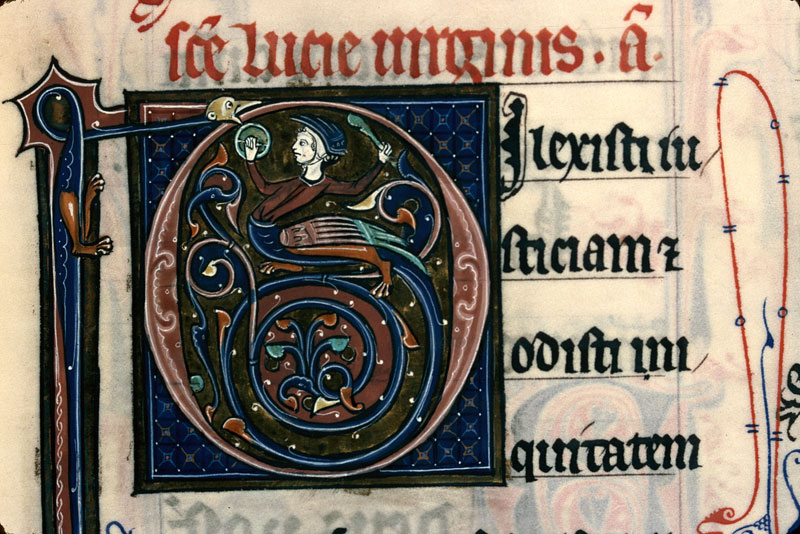 sce̅ Lucie uirginis · a̅.
Dilexisti iu
sticiam ⁊
odisti ini
quitatem